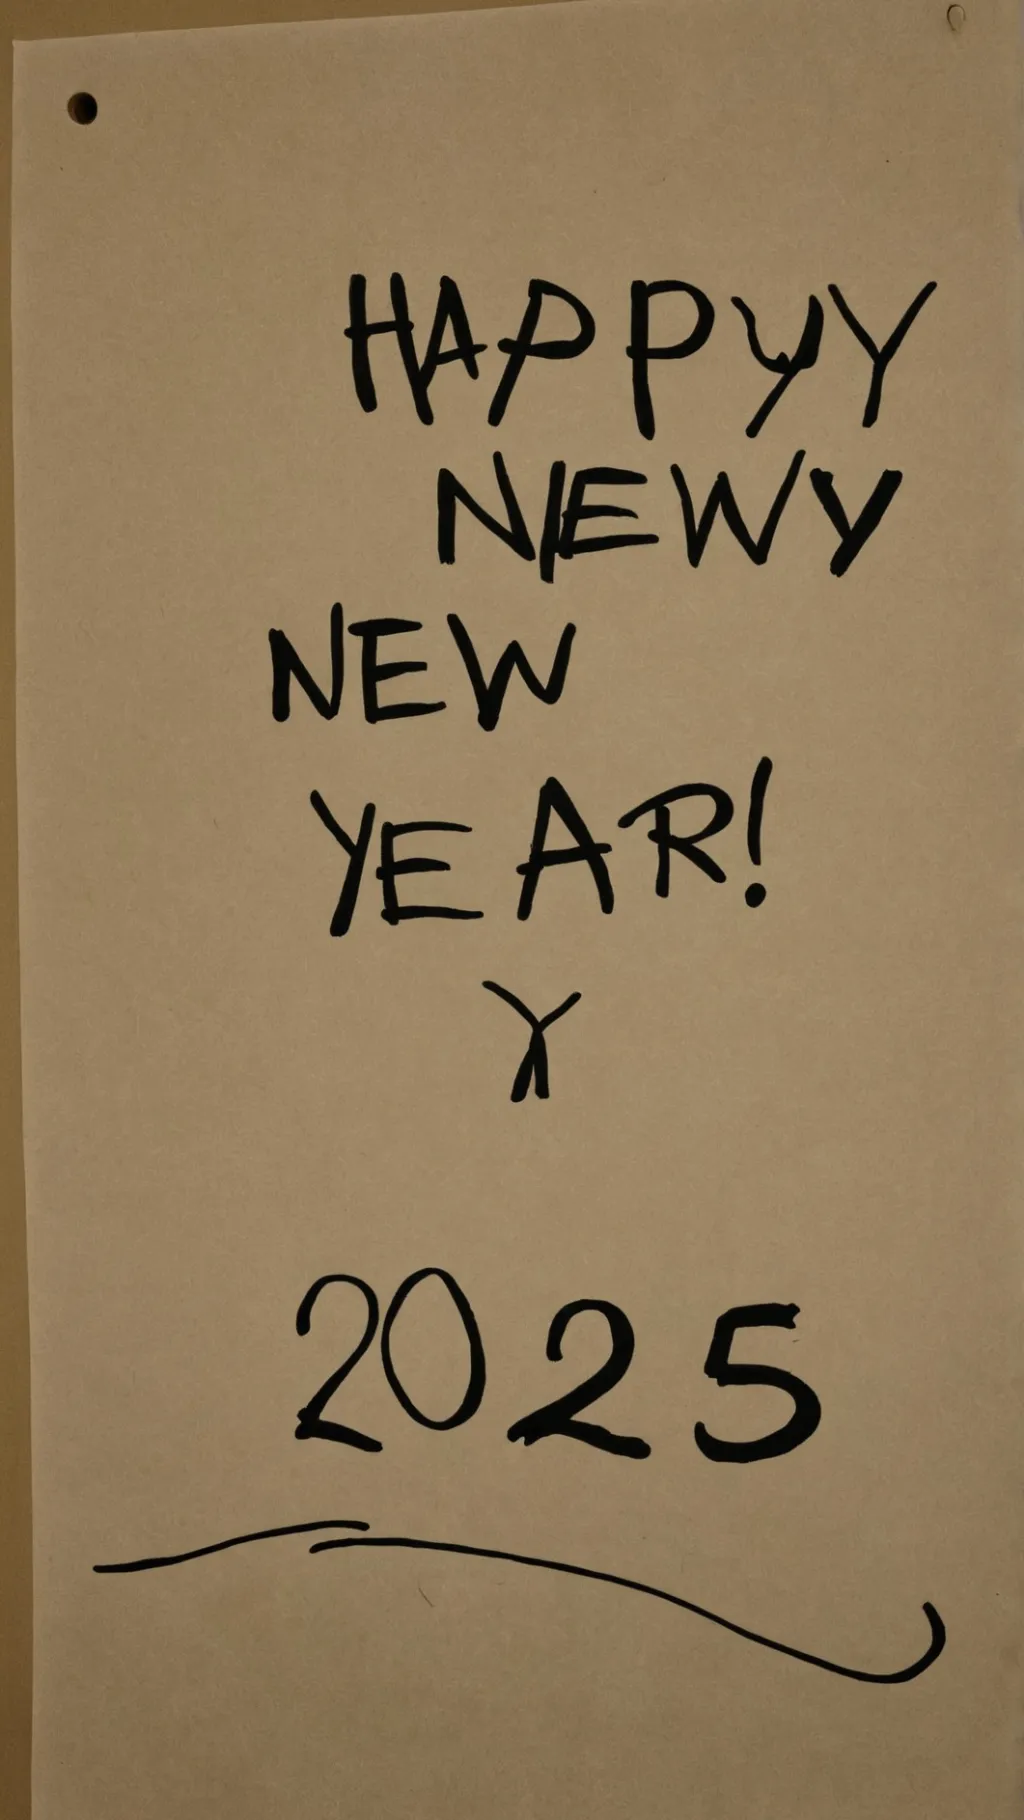 HAPPYY
NEWY
NEW
YEAR!
Y
2025